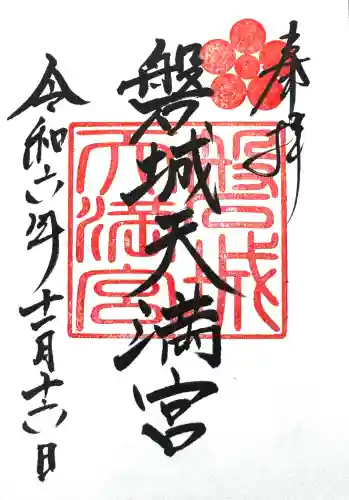 奉拝
磐城天満宮
令和六年十一月十六日
磐城
天満宮